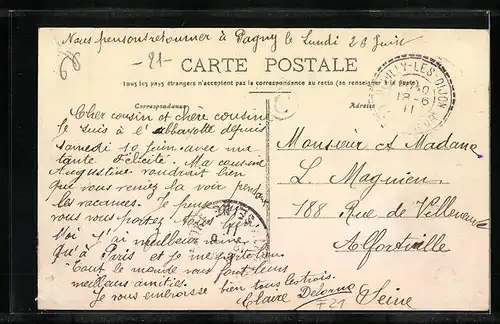 Nous pensons retourner à Pagny le Lundi 26 Juin
68
-21-
CARTE POSTALE
Tous les pays étrangers n'acceptent pas la correspondance au recto (se renseigner à la poste)
Correspondance
Adresse
C
LES-DIJON
18-6
11
Cher cousin et chère cousine
Je suis à l'abbayotte depuis
samedi 10 juin avec ma
tante Félicité. Ma cousine
Augustine voudrait bien
que vous veniez la voir pendant
les vacances. Je pense que
vous vous portez tous bien
Moi j'ai meilleure mine
qu'à Paris et je me porte bien
Tout le monde vous font leurs
meilleurs amitiés.
Je vous embrasse bien tous les trois.
Claire Delorme
F21
Monsieur et Madame
L. Magnien
188 Rue de Villeneuve
Alfortville
Seine